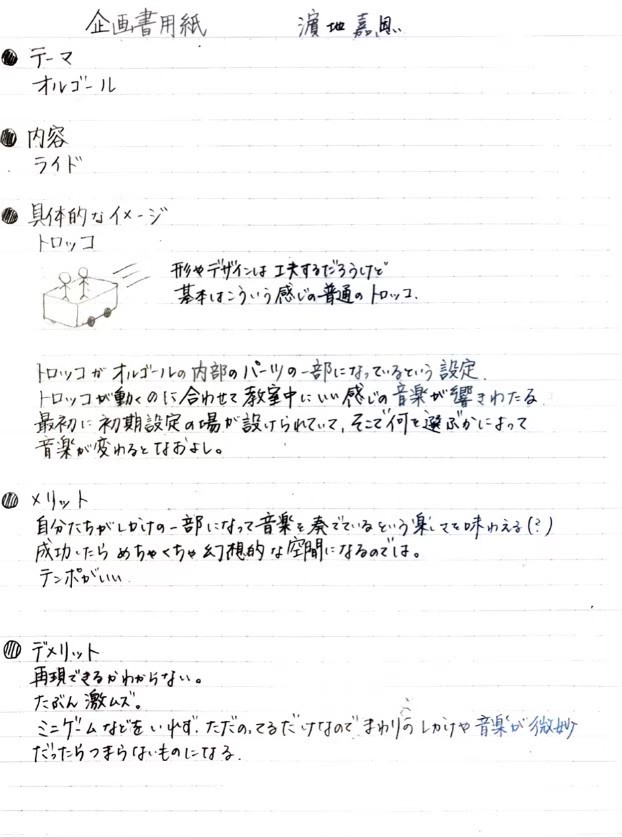 企画書用紙 濵地嘉恩
● テーマ
オルゴール
● 内容
ライド
● 具体的なイメージ
トロッコ
形やデザインは工夫するだろうけど
基本はこういう感じの普通のトロッコ.
トロッコがオルゴールの内部のパーツの一部になっているという設定.
トロッコが動くのに合わせて教室中にいい感じの音楽が響きわたる.
最初に初期設定の場が設けられていて、そこで何を選ぶかによって
音楽が変わるとなおよし。
● メリット
自分たちがしかけの一部になって音楽を奏でているという楽しさを味わえる(?)
成功したらめちゃくちゃ幻想的な空間になるのでは。
テンポがいい
● デメリット
再現できるかわからない。
たぶん激ムズ。
ミニゲームなどをいれず、ただのってるだけなのでまわりのしかけや音楽が微妙
だったらつまらないものになる.